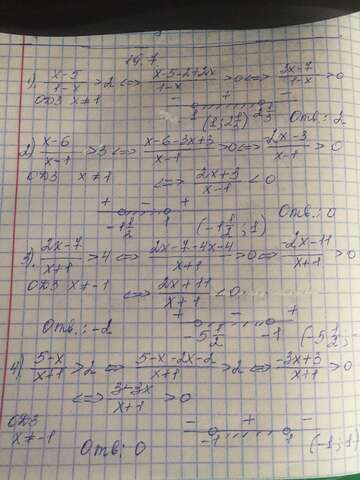 19.7.
1) (x-5)/(1-x) > 2 <=> (x-5-2+2x)/(1-x) > 0 <=> (3x-7)/(1-x) > 0
ОДЗ x≠1
- + -
1 2 1/3
(1; 2 1/3) Отв.: 2
2) (x-6)/(x-1) > 3 <=> (x-6-3x+3)/(x-1) > 0 <=> (-2x-3)/(x-1) > 0
ОДЗ x≠1 <=> (2x+3)/(x-1) < 0
+ - +
-1 1/2 1
(-1 1/2; 1) Отв.: 0
3) (2x-7)/(x+1) > 4 <=> (2x-7-4x-4)/(x+1) > 0 <=> (-2x-11)/(x+1) > 0
ОДЗ x≠-1 <=> (2x+11)/(x+1) < 0
+ - +
Отв.: -2 -5 1/2 -1 (-5 1/2;
4) (5-x)/(x+1) > 2 <=> (5-x-2x-2)/(x+1) > 2 <=> (-3x+3)/(x+1) > 0
<=> (3-3x)/(x+1) > 0
ОДЗ
x≠-1
- + -
-1 1
Отв: 0 (-1; 1)